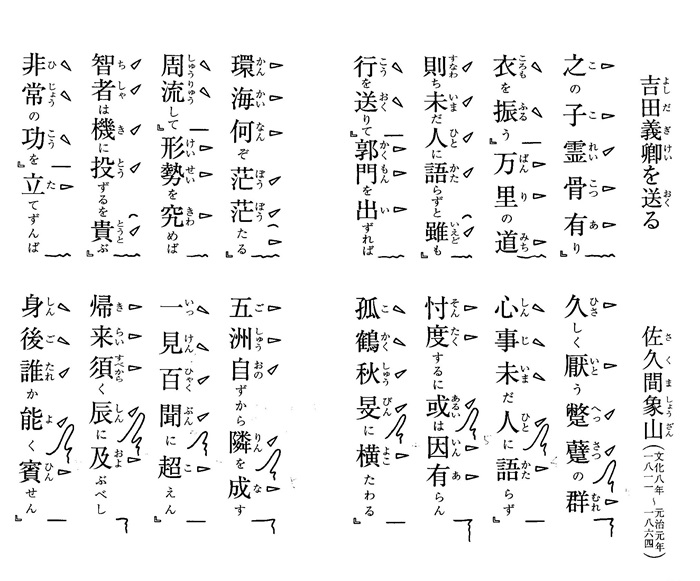 吉田義卿を送る
佐久間象山(文化八年~元治元年 一八一一~一八六四)
之の子霊骨有り
久しく厭う蹩躠の群
衣を振う万里の道
心事未だ人に語らず
則ち未だ人に語らずと雖も
忖度するに或は因有らん
行を送りて郭門を出ずれば
孤鶴秋旻に横たわる
環海何ぞ茫茫たる
五洲自ずから隣を成す
周流して形勢を究めば
一見百聞に超えん
智者は機に投ずるを貴ぶ
帰来須く辰に及ぶべし
非常の功を立てずんば
身後誰か能く賓せん